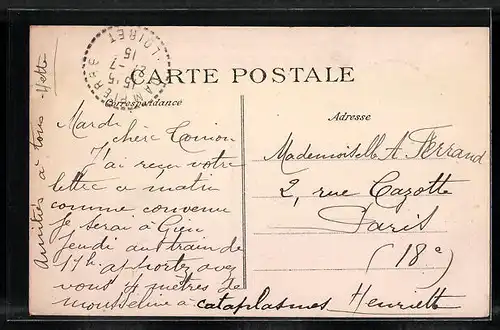 CARTE POSTALE
Correspondance
Adresse
DAMPIERRE
LOIRET
15-5
7-7
15
Mardi
chère
J'ai reçu votre
lettre ce matin
comme convenu
je serai à Gien
jeudi au train de
17h. apportez avec
vous 4 mètres de
mousseline à cataplasmes Henriette
Amitiés à tous - Hette
Mademoiselle A. Ferrand
2, rue Cazotte
Paris
(18e)